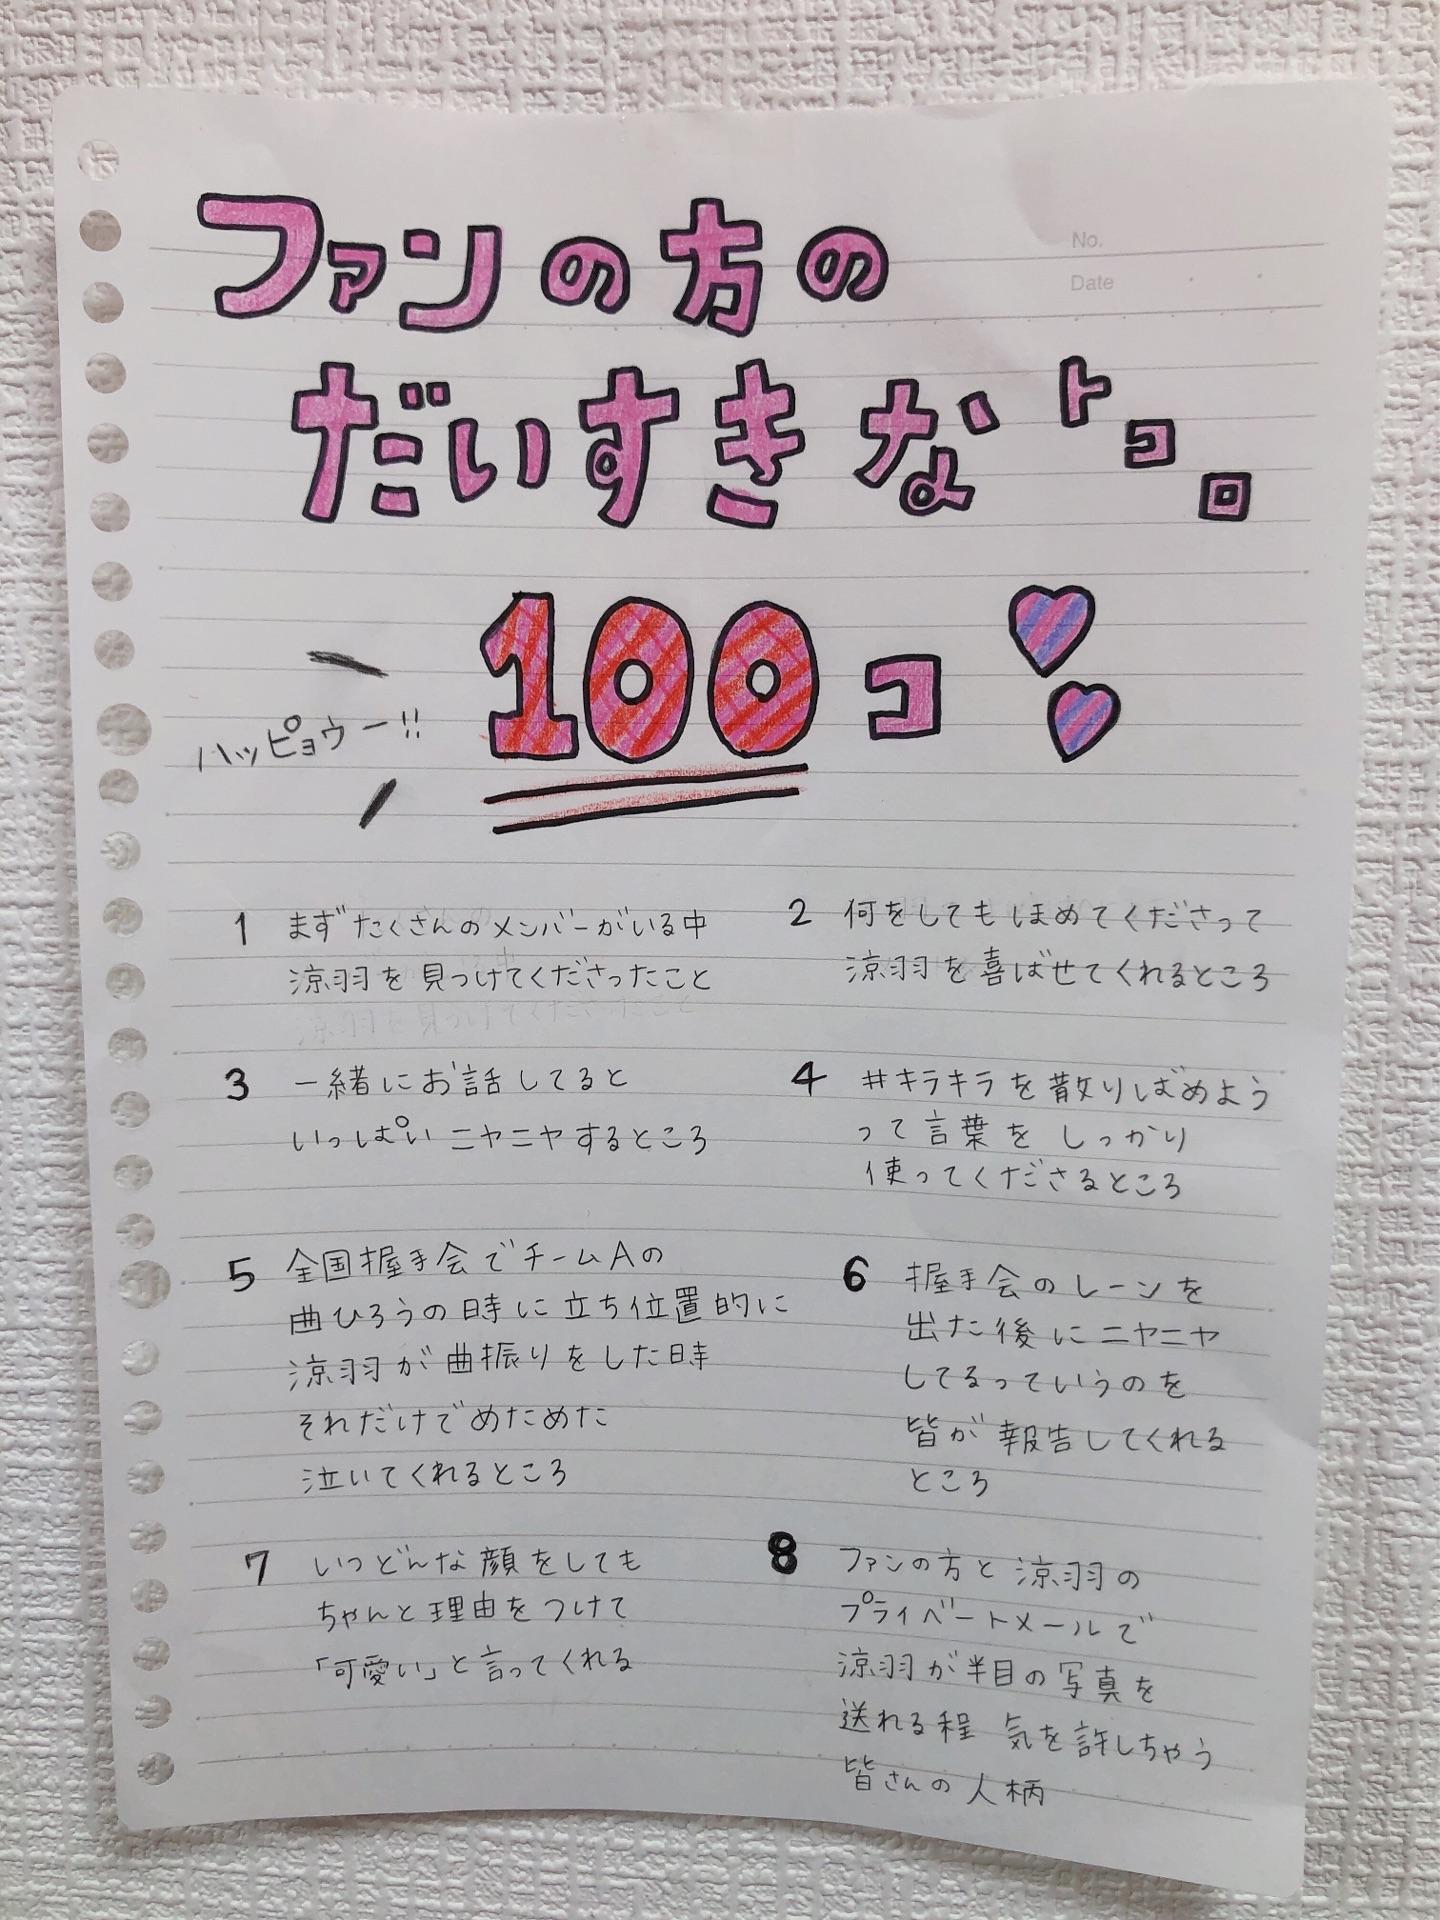 No.
Date
ファンの方の
だいすきなトコロ
100コ
ハッピョウー!!
1 まずたくさんのメンバーがいる中
涼羽を見つけてくださったこと
2 何をしてもほめてくださって
涼羽を喜ばせてくれるところ
3 一緒にお話してると
いっぱいニヤニヤするところ
4 #キラキラを散りばめよう
って言葉をしっかり
使ってくださるところ
5 全国握手会でチームAの
曲ひろうの時に立ち位置的に
涼羽が曲振りをした時
それだけでめためた
泣いてくれるところ
6 握手会のレーンを
出た後にニヤニヤ
してるっていうのを
皆が報告してくれる
ところ
7 いつどんな顔をしても
ちゃんと理由をつけて
「可愛い」と言ってくれる
8 ファンの方と涼羽の
プライベートメールで
涼羽が半目の写真を
送れる程 気を許しちゃう
皆さんの人柄